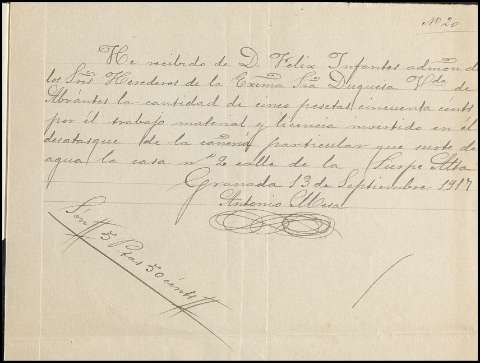 Nº 20
He recibido de D. Felix Infantes admon de
los Sres Herederos de la Excma Sra Duquesa Vda de
Abrantes la cantidad de cinco pesetas cincuenta cénts
por el trabajo material y licencia invertido en él
desatasque de la cañería particular que surte de
agua la casa nº 2 calle de la Alta
Granada 13 de Septiembre 1917
Antonio Mesa
Son 5 Ptas 50 cénts